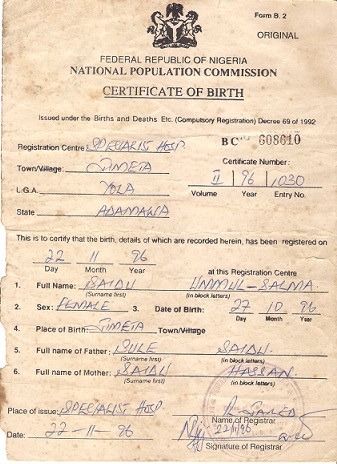 Form B. 2
ORIGINAL
FEDERAL REPUBLIC OF NIGERIA
NATIONAL POPULATION COMMISSION
CERTIFICATE OF BIRTH
Issued under the Births and Deaths Etc. (Compulsory Registration) Decree 69 of 1992
B C 608610
Registration Centre SPECIALIST HOSP.
Certificate Number:
Town/Village: JIMETA
II 96 1030
L.G.A. YOLA
Volume Year Entry No.
State ADAMAWA
This is to certify that the birth, details of which are recorded herein, has been registered on
22 11 96
Day Month Year at this Registration Centre
1. Full Name: SAIDU UMMUL-SALMA
(Surname first) (in block letters)
2. Sex: FEMALE 3. Date of Birth: 27 10 96
Day Month Year
4. Place of Birth: JIMETA Town/Village
5. Full name of Father: BULE SAIDU
(Surname first) (in block letters)
6. Full name of Mother: SAIDU HASSAN
(Surname first) (in block letters)
Place of issue: SPECIALIST HOSP.
Name of Registrar
Date: 22-11-96
22/11/96
Signature of Registrar